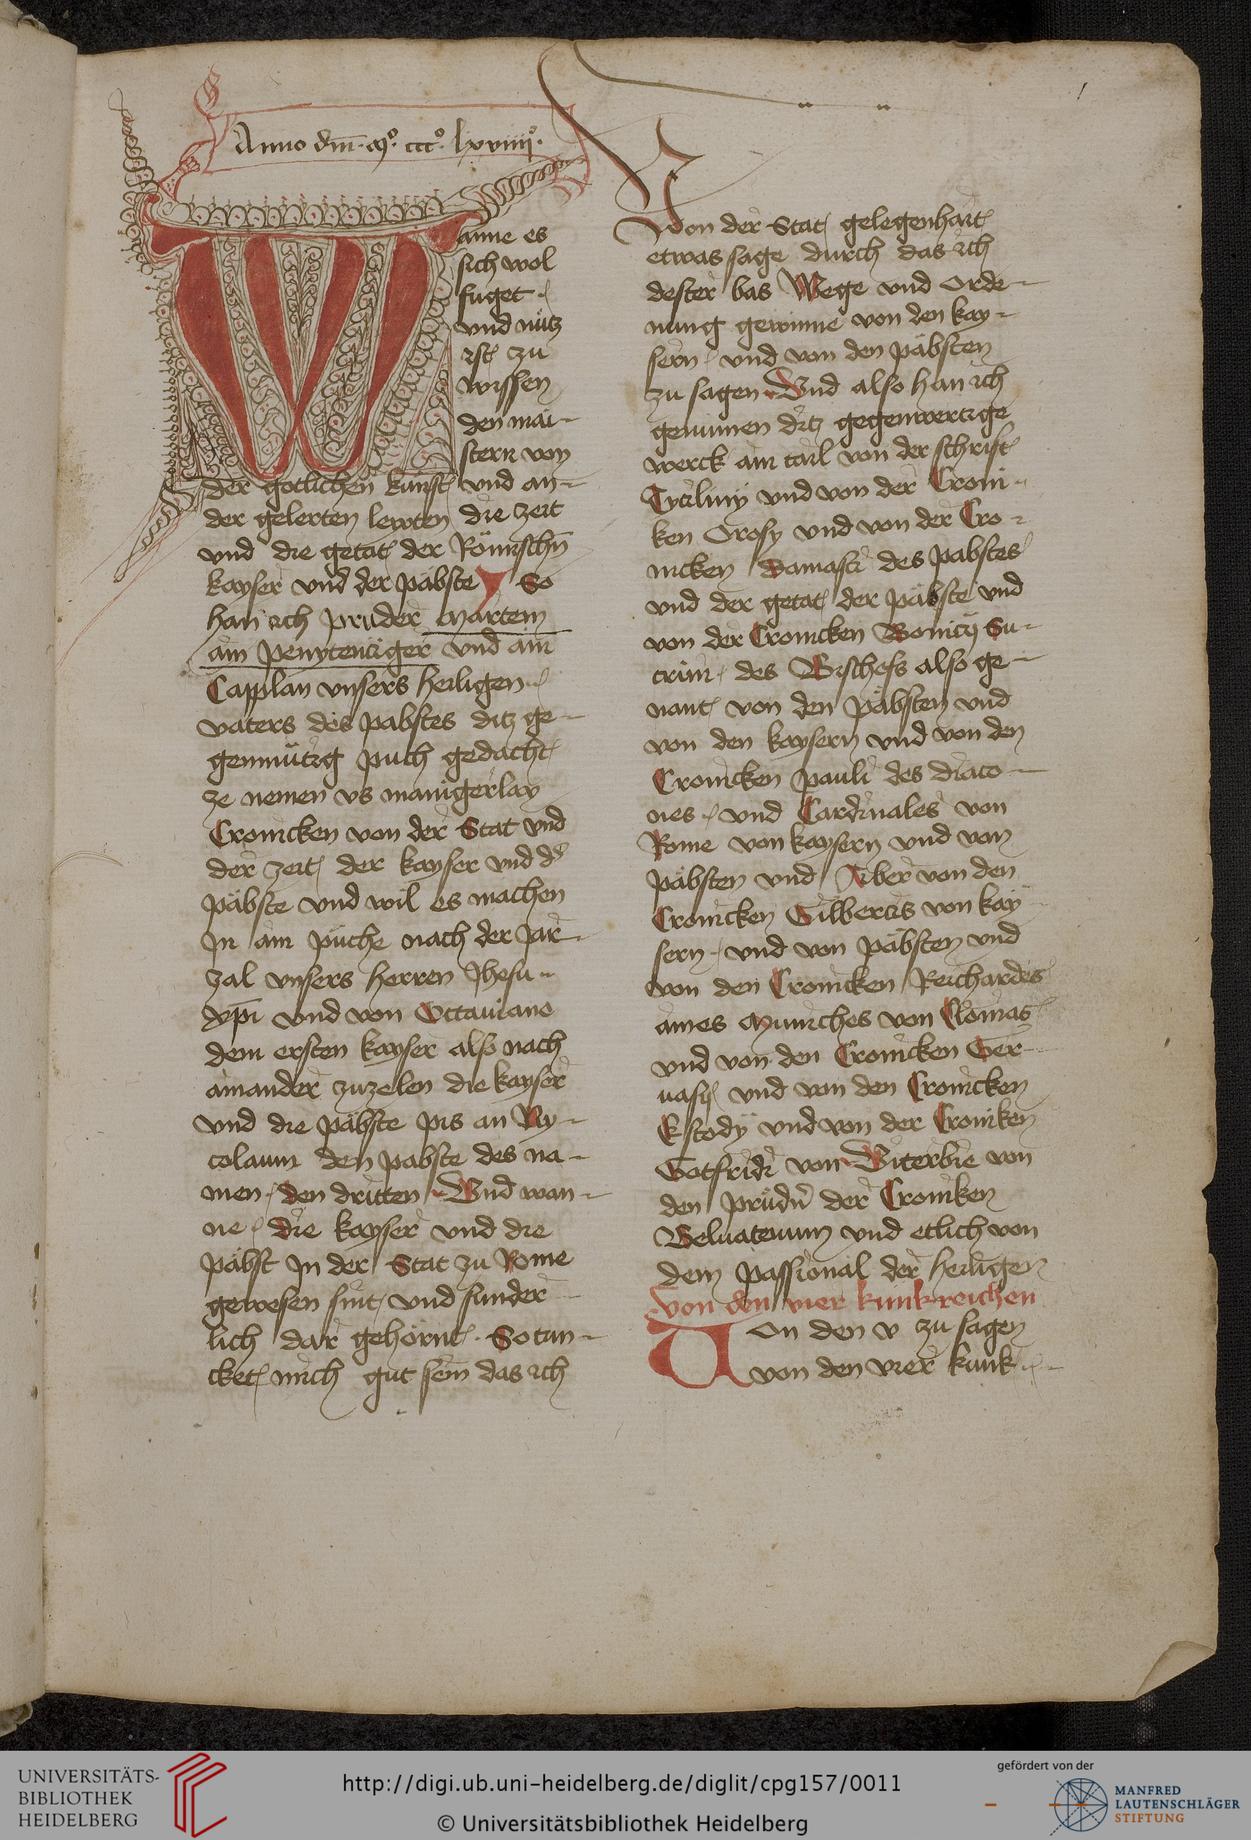 Anno dm̄. mº. cccº. lxviiijº.
Wanne es
sich wol
fuget
vnd nütz
ist zu
wissen
den mai-
stern von
der gotlichen kunst vnd an-
der gelerten lewten die zeit
vnd die getat der Römischn̄
kayser vnd der päbste So
han ich pruder Martein
ain penytenciger vnd ain
Capplan vnsers heiligen
vaters des pabstes ditz ge-
genwürtig puch gedacht
ze nemen vs manigerlay
Cronicken von der Stat vnd
der zeit der kayser vnd dˀ
päbste vnd wil es machen
In aim puche nach der Jar-
zal vnsers herren Jhesu
xp̄i vnd von Octauiano
dem ersten kayser also nach
ainander zuzelen die kayser
vnd die päbste pis an Ny-
colaum den pabste des na-
men den dritten Vnd wan-
ne die kayser vnd die
päbst In der Stat zu Rome
gewesen sint vnd sunder
lich dar gehörnt. So tun-
cket mich gut sein das ich
1
Von der Stat gelegenhait
etwas sage durch das ich
dester bas Wege vnd Orde-
nung gewinne von den kay-
sern vnd von den päbsten
zu sagen Vnd also han ich
genumen ditz gegenwertige
werck ain tail von der schrift
Tytiliuij vnd von der Croni-
ken Orosy vnd von der Cro-
nicken Damasci des pabstes
vnd der getat der päbste vnd
von der Cronicken Bonicij Su-
trini des Bischofs also ge-
nant von den päbsten vnd
von den kaysern vnd von den
Cronicken pauli des diaco-
nes vnd Cardinales von
Rome von kaysern vnd von
päbsten vnd Aber von den
Cronicken Gilbertis von kay
sern vnd von päbsten vnd
von den Cronicken Reichardes
aines Muniches von
vnd von den Cronicken Ger-
uasij vnd von den Cronicken
Estodÿ vnd von der Croniken
Gotfridi von Viterbie von
den prüdn̄ der Croniken
Beluatenum vnd etlich von
dem passional der heiligen
Von den vier kunkreichen
Von den v zu sagen
von den vier kunk
UNIVERSITÄTS-
BIBLIOTHEK
HEIDELBERG
http://digi.ub.uni-heidelberg.de/diglit/cpg157/0011
© Universitätsbibliothek Heidelberg
gefördert von der
MANFRED
LAUTENSCHLÄGER
STIFTUNG